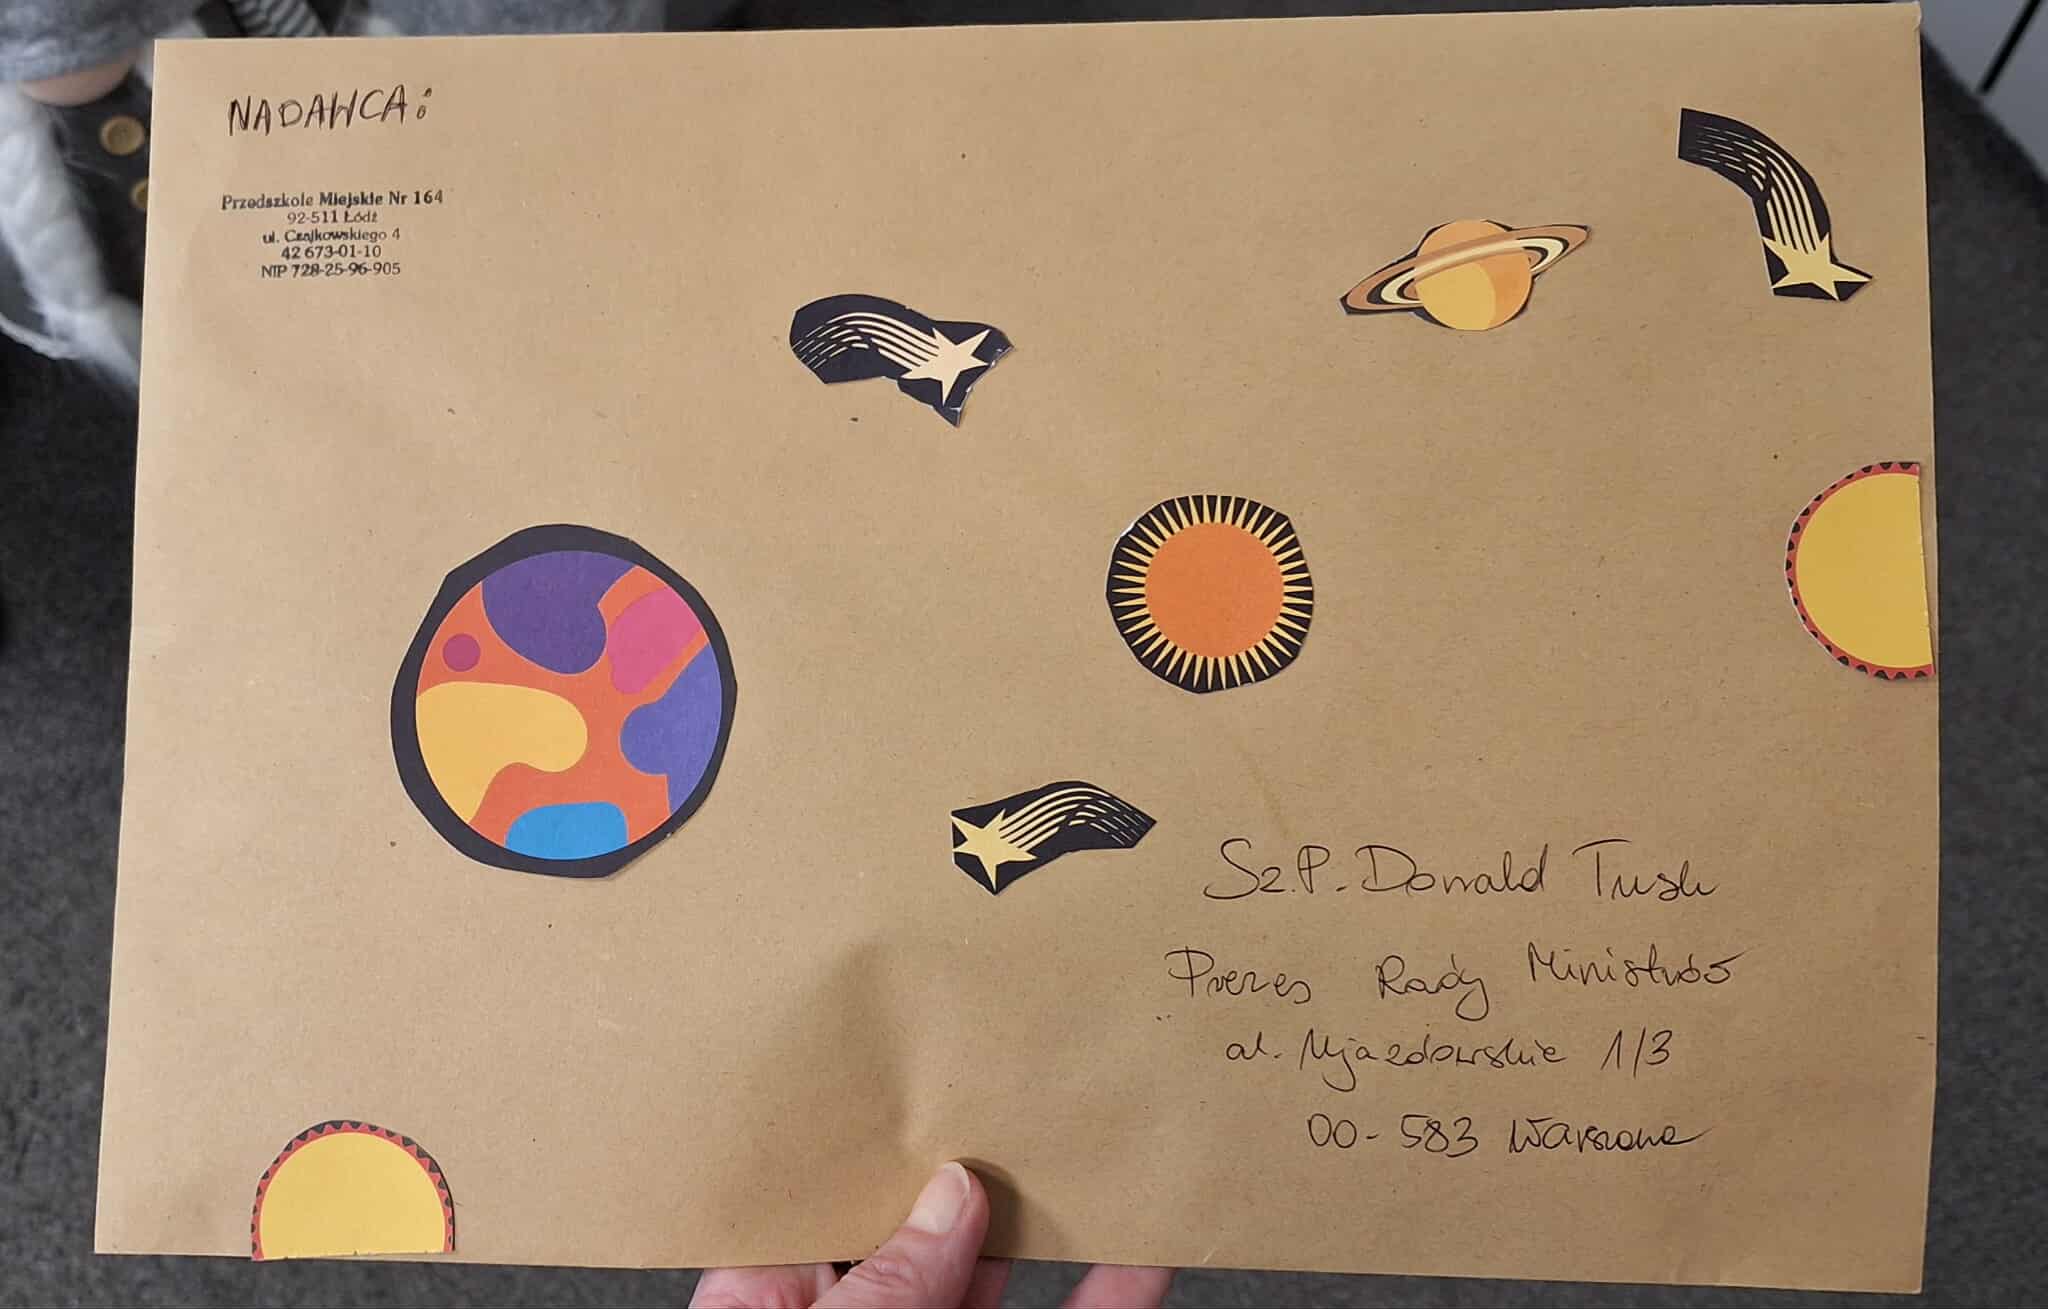 NADAWCA:
Przedszkole Miejskie Nr 164
92-511 Łódź
ul. Czajkowskiego 4
42 673-01-10
NIP 728-25-96-905
Sz.P. Donald Tusk
Prezes Rady Ministrów
al. Ujazdowskie 1/3
00-583 Warszawa